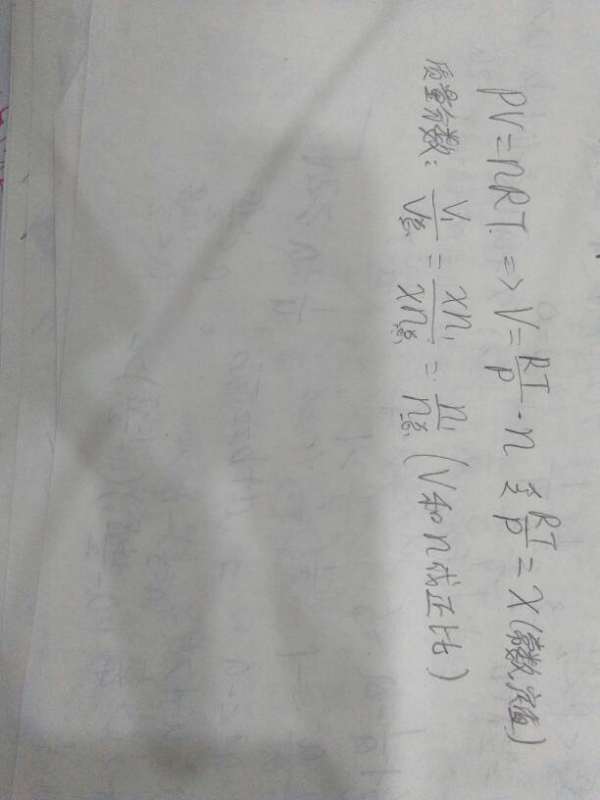 PV=nRT. => V=\frac{RT}{P}·n 令\frac{RT}{P}=x(常数,定值)
质量分数: \frac{V_1}{V_总}=\frac{xn_1}{xn_总}=\frac{n_1}{n_总}(V和n成正比)